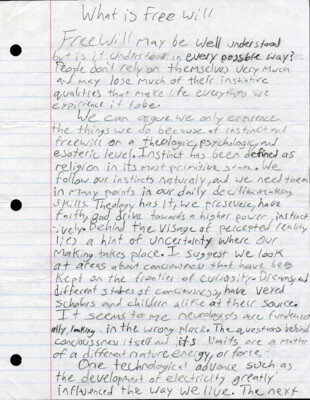 What is Free Will
Free Will may be well understood
but is it understood in every possible way?
People don't rely on themselves very much
and may lose much of their instative
qualities that make life everything we
expirience it to be.
We can argue we only experence
the things we do because of instinct and
freewill on a theologic, psychologic, and
esoteric level. Instinct has been defined as
religion in its most primitive state. We
follow our instincts naturally, and we need them
in many points in our daily decition making
skills. Theology has it, we presevere, have
faith, and drive towards a higher power, instinct
ively. Behind the visage of percepted reality
lies a hint of uncertainty where our
making takes place. I suggest we look
at areas about conciousness that have
kept on the frontier of curiosity. Dreams, and
different states of conciousness, have vexed
scholars and children alike at their source.
It seems to me neurologists are fundement
ally, looking in the wrong place. The questions behind
conciousness itself and its limits are a matter
of a different nature, energy, or force.
One technological advance such as
the development of electricity greatly
influenced the way we live. The next